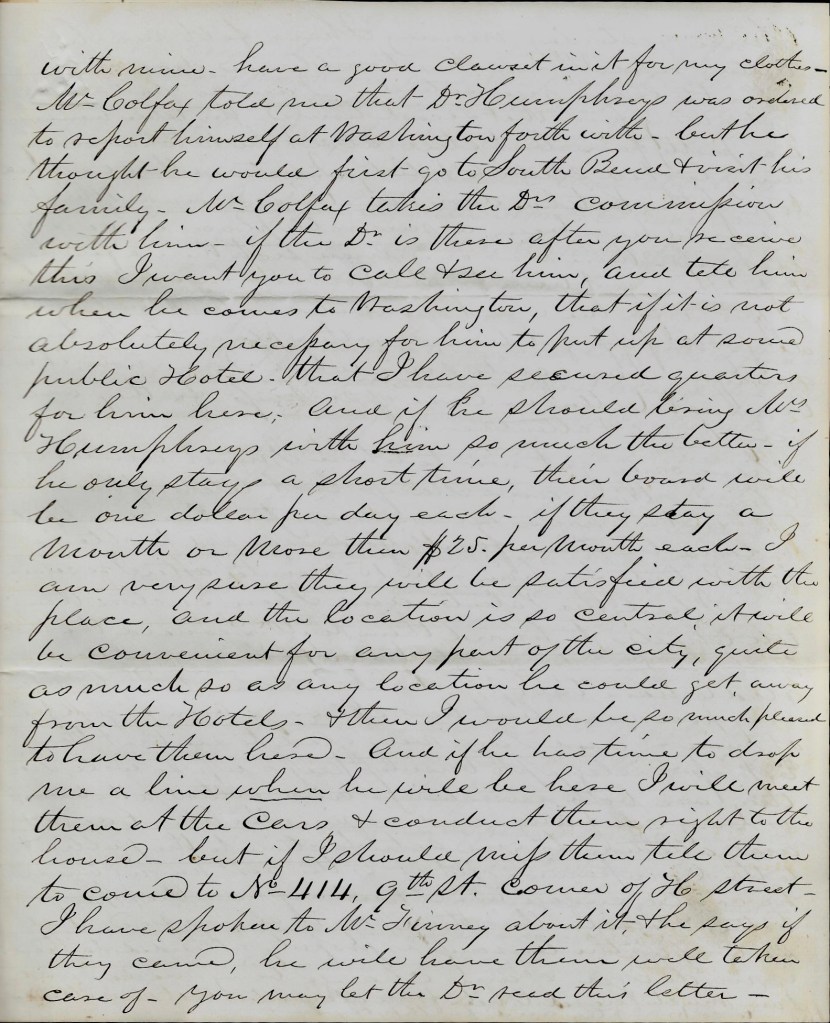 with mine - have a good clawset in it for my clothes -
Mr Colfax told me that Dr Humphreys was ordered
to report himself at Washington forth with - but he
thought he would first go to South Bend & visit his
family - Mr Colfax takes the Drs commission
with him - if the Dr is there after you receive
this I want you to call & see him, and tell him
when he comes to Washington, that if it is not
absolutely necessary for him to put up at some
public Hotel - that I have secured quarters
for him here, And if he should bring Mrs
Humphreys with him so much the better - if
he only stays a short time, their board will
be one dollar per day each - if they stay a
month or more then $25. per month each - I
am very sure they will be satisfied with the
place, and the location is so central, it will
be convenient for any part of the city, quite
as much so as any location he could get, away
from the Hotels - & then I would be so much pleased
to have them here - And if he has time to drop
me a line when he will be here I will meet
them at the Cars & conduct them right to the
house - but if I should miss them tell them
to come to No 414, 9th St. Corner of H street -
I have spoken to Mr Finney about it, & he says if
they come, he will have them well taken
care of - You may let the Dr read this letter -